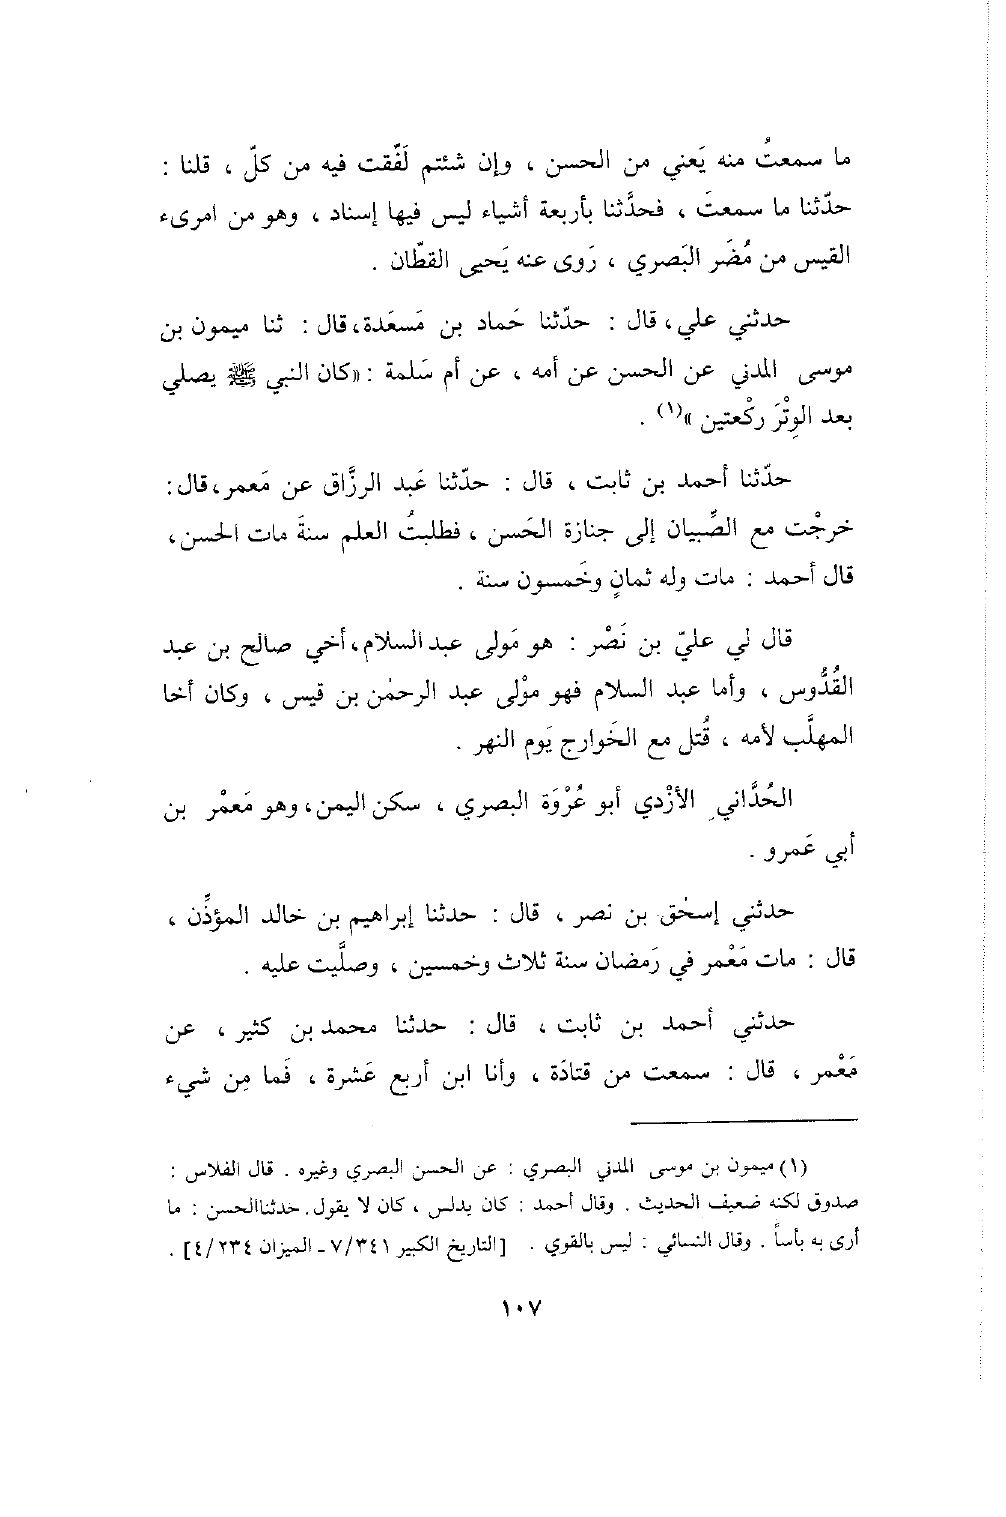 ما سمعتُ منه يَعني من الحسن ، وإن شئتم لَفّقت فيه من كلّ ، قلنا :
حدّثنا ما سمعتَ ، فحدَّثنا بأربعة أشياء ليس فيها إسناد ، وهو من امرىء
القيس من مُضَر البَصري ، رَوى عنه يَحيى القطّان .
حدثني علي ، قال : حدّثنا حَماد بن مَسعَدة ، قال : ثنا ميمون بن
موسى المدني عن الحسن عن أمه ، عن أم سَلمة : «كان النبي ﷺ يصلي
بعد الوِتْرَ ركْعتين »(١) .
حدّثنا أحمد بن ثابت ، قال : حدّثنا عَبد الرزَّاق عن مَعمر ، قال :
خرجْت مع الصِّبيان إلى جنازة الحَسن ، فطلبتُ العلم سنةَ مات الحسن ،
قال أحمد : مات وله ثمانٍ وخَمسون سنة .
قال لي عليّ بن نَصْر : هو مَولى عبد السلام ، أخي صالح بن عبد
القُدُّوس ، وأما عبد السلام فهو موْلى عبد الرحمٰن بن قيس ، وكان أخا
المهلَّب لأمه ، قُتل مع الخَوارج يَوم النهر .
الحُدَّاني الأزْدي أبو عُرْوَة البصري ، سكن اليمن ، وهو مَعمْر بن
أبي عَمرو .
حدثني إسحٰق بن نصر ، قال : حدثنا إبراهيم بن خالد المؤذِّن ،
قال : مات مَعْمر في رَمضان سنة ثلاث وخمسين ، وصلَّيت عليه .
حدثني أحمد بن ثابت ، قال : حدثنا محمد بن كثير ، عن
مَعْمر ، قال : سمعت من قتادَة ، وأنا ابن أربع عَشرة ، فَما مِن شيء
(١) ميمون بن موسى المدني البصري : عن الحسن البصري وغيره . قال الفلاس :
صدوق لكنه ضعيف الحديث . وقال أحمد : كان يدلس ، كان لا يقول . حدثنا الحسن : ما
أرى به بأساً . وقال النسائي : ليس بالقوي . [التاريخ الكبير ٧/٣٤١ ـ الميزان ٤/٢٣٤] .
١٠٧